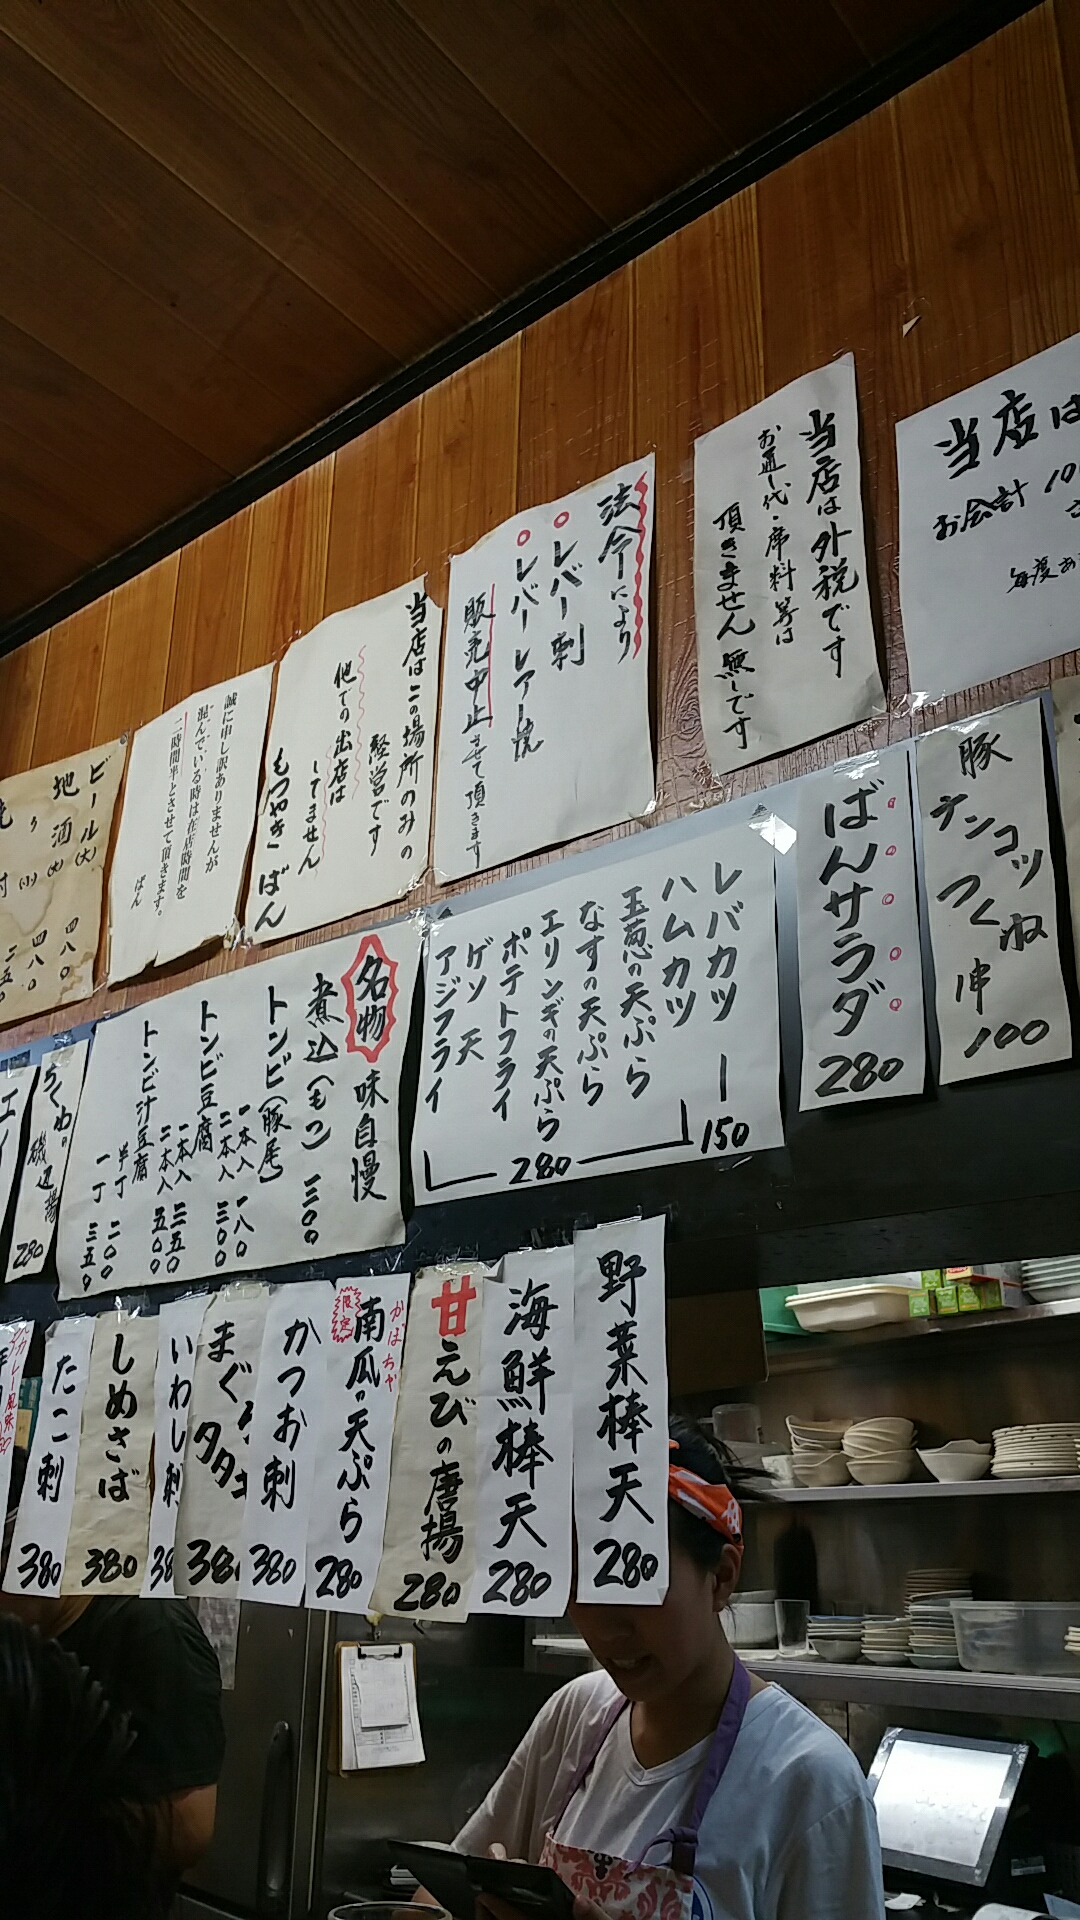 当店は
お会計
当店は外税です
お通し代・席料等は
頂きません 無しです
法令により
○レバー刺
○レバーレアー焼
販売中止させて頂きます
当店はこの場所のみの
経営です
他での出店は
してません
もつやき ばん
誠に申し訳ありませんが
混んでいる時は在店時間を
二時間半とさせて頂きます。
ばん
ビール(大) 四八〇
地酒(大) 四八〇
〃(小) 二五〇
豚ナンコツ
つくね串
100
ばんサラダ
280
レバカツ ー 150
ハムカツ
玉葱の天ぷら
なすの天ぷら
エリンギの天ぷら
ポテトフライ
ゲソ天
アジフライ
280
名物 味自慢
煮込(もつ) 三〇〇
トンビ(豚尾)
一本入 一八〇
二本入 三〇〇
トンビ豆腐
一本入 三五〇
二本入 五〇〇
トンビ汁豆腐
半丁 二〇〇
一丁 三五〇
ちくわの磯辺揚
280
野菜棒天
280
海鮮棒天
280
甘えびの唐揚
280
限定
南瓜の天ぷら
かぼちゃ
280
かつお刺
380
まぐろ
タタキ
いわし刺
しめさば
380
たこ刺
380
カレー風味